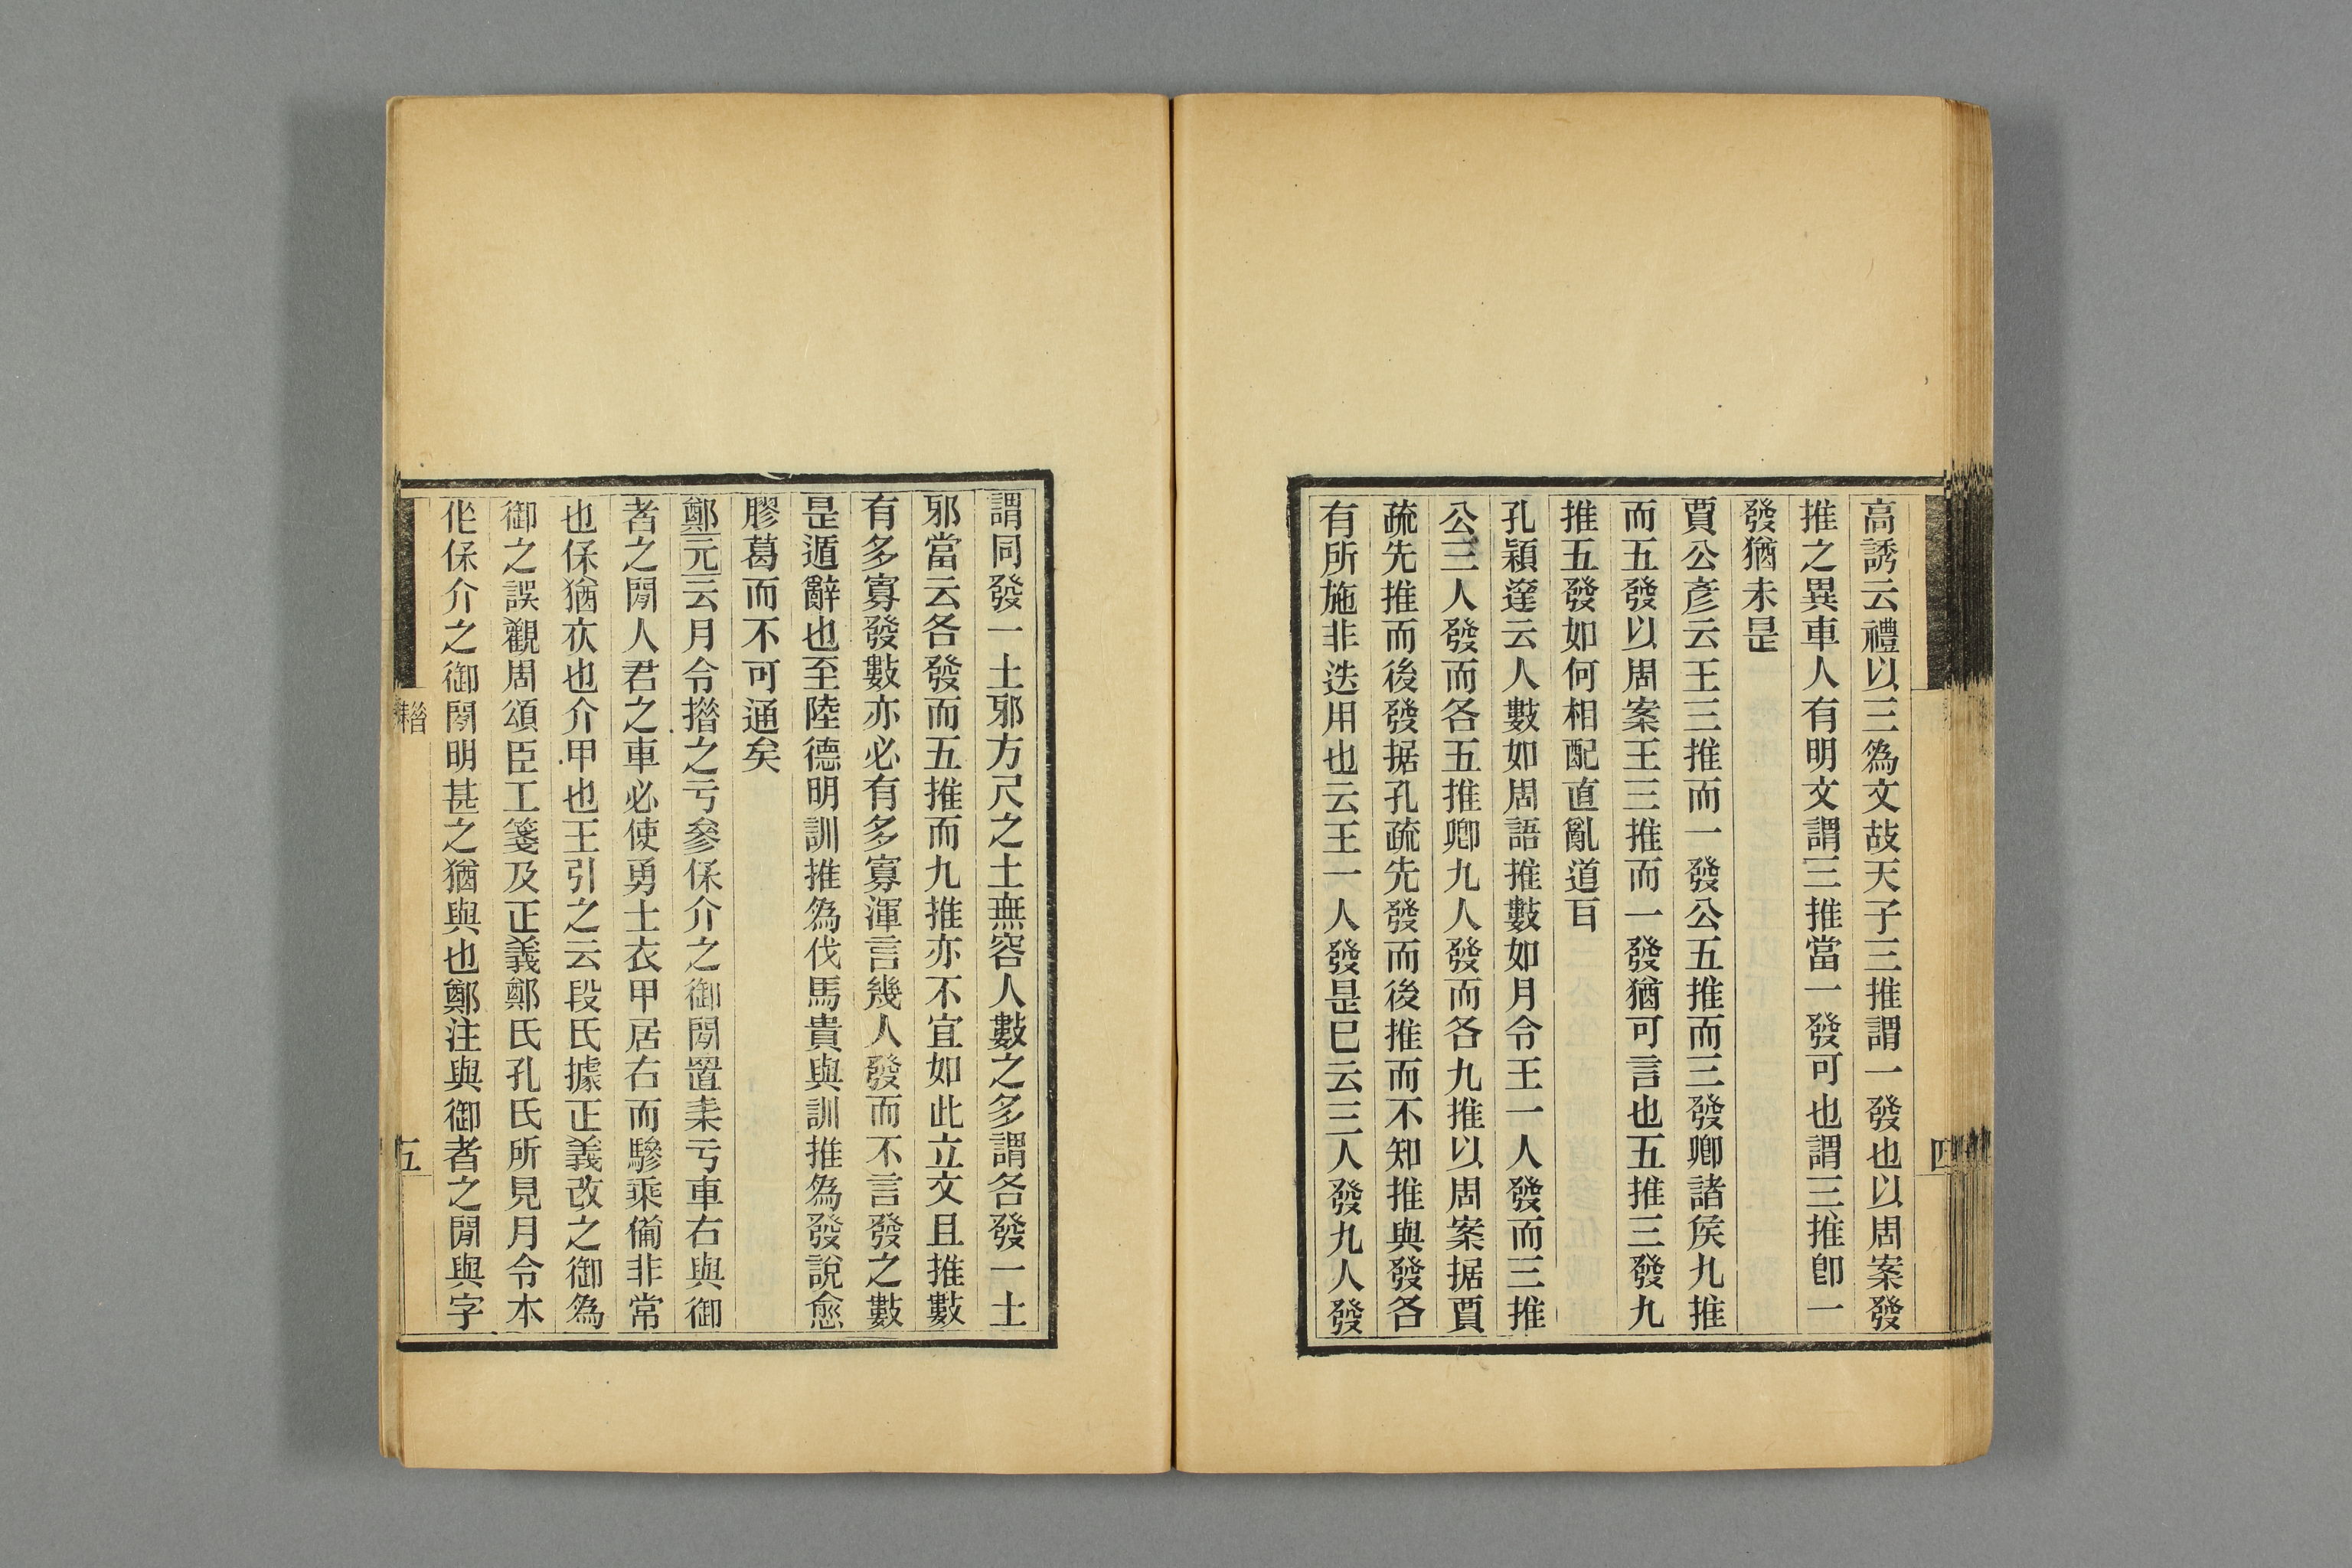 高誘云禮以三爲文故天子三推謂一發也以周案發
推之異車人有明文謂三推當一發可也謂三推卽一
發猶未是
賈公彥云王三推而一發公五推而三發卿諸侯九推
而五發以周案王三推而一發猶可言也五推三發九
推五發如何相配直亂道耳
孔穎達云人數如周語推數如月令王一人發而三推
公三人發而各五推卿九人發而各九推以周案据賈
疏先推而後發据孔疏先發而後推而不知推與發各
有所施非迭用也云王一人發是巳云三人發九人發
四
謂同發一土邪方尺之土無容人數之多謂各發一土
邪當云各發而五推而九推亦不宜如此立文且推數
有多寡發數亦必有多寡渾言幾人發而不言發之數
是遁辭也至陸德明訓推爲伐馬貴與訓推爲發說愈
膠葛而不可通矣
鄭元云月令措之亏參保介之御閒置耒亏車右與御
者之閒人君之車必使勇士衣甲居右而驂乘備非常
也保猶衣也介甲也王引之云段氏據正義改之御爲
御之誤觀周頌臣工箋及正義鄭氏孔氏所見月令本
作保介之御閒明甚之猶與也鄭注與御者之閒與字
五